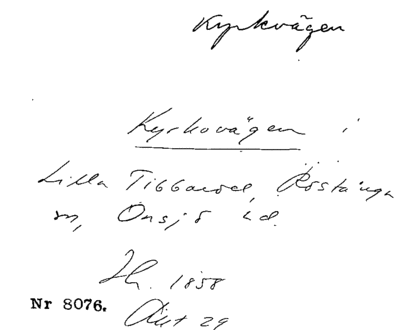 Kyrkvägen
Kyrkovägen i
Lilla Tibbaröd, Röstånga
sn, Onsjö hd.
Jh. 1858
Nr 8076. Akt 29